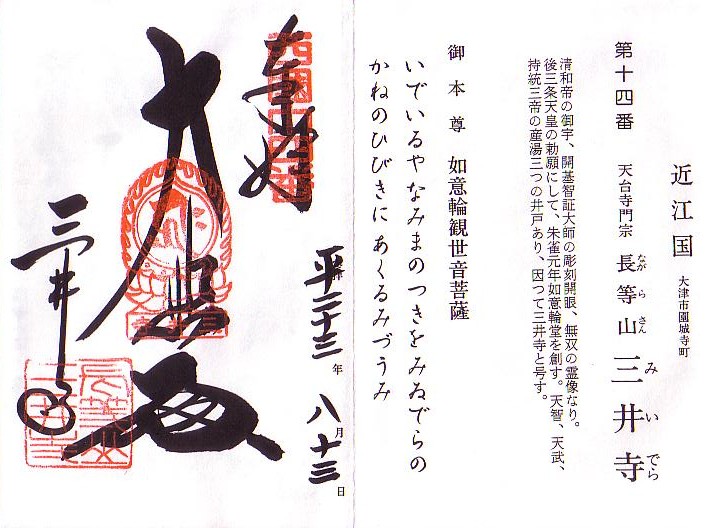 近江国 大津市園城寺町
第十四番 天台寺門宗 長等山 三井寺
ながらさん みいでら
清和帝の御宇、開基智証大師の彫刻開眼、無双の霊像なり。
後三条天皇の勅願にして、朱雀元年如意輪堂を創す。天智、天武、
持統三帝の産湯三つの井戸あり、因つて三井寺と号す。
御本尊 如意輪観世音菩薩
いでいるやなみまのつきをみゐでらの
かねのひびきにあくるみづうみ
奉拝
平成二十三年 八月十三日
大悲殿
三井寺